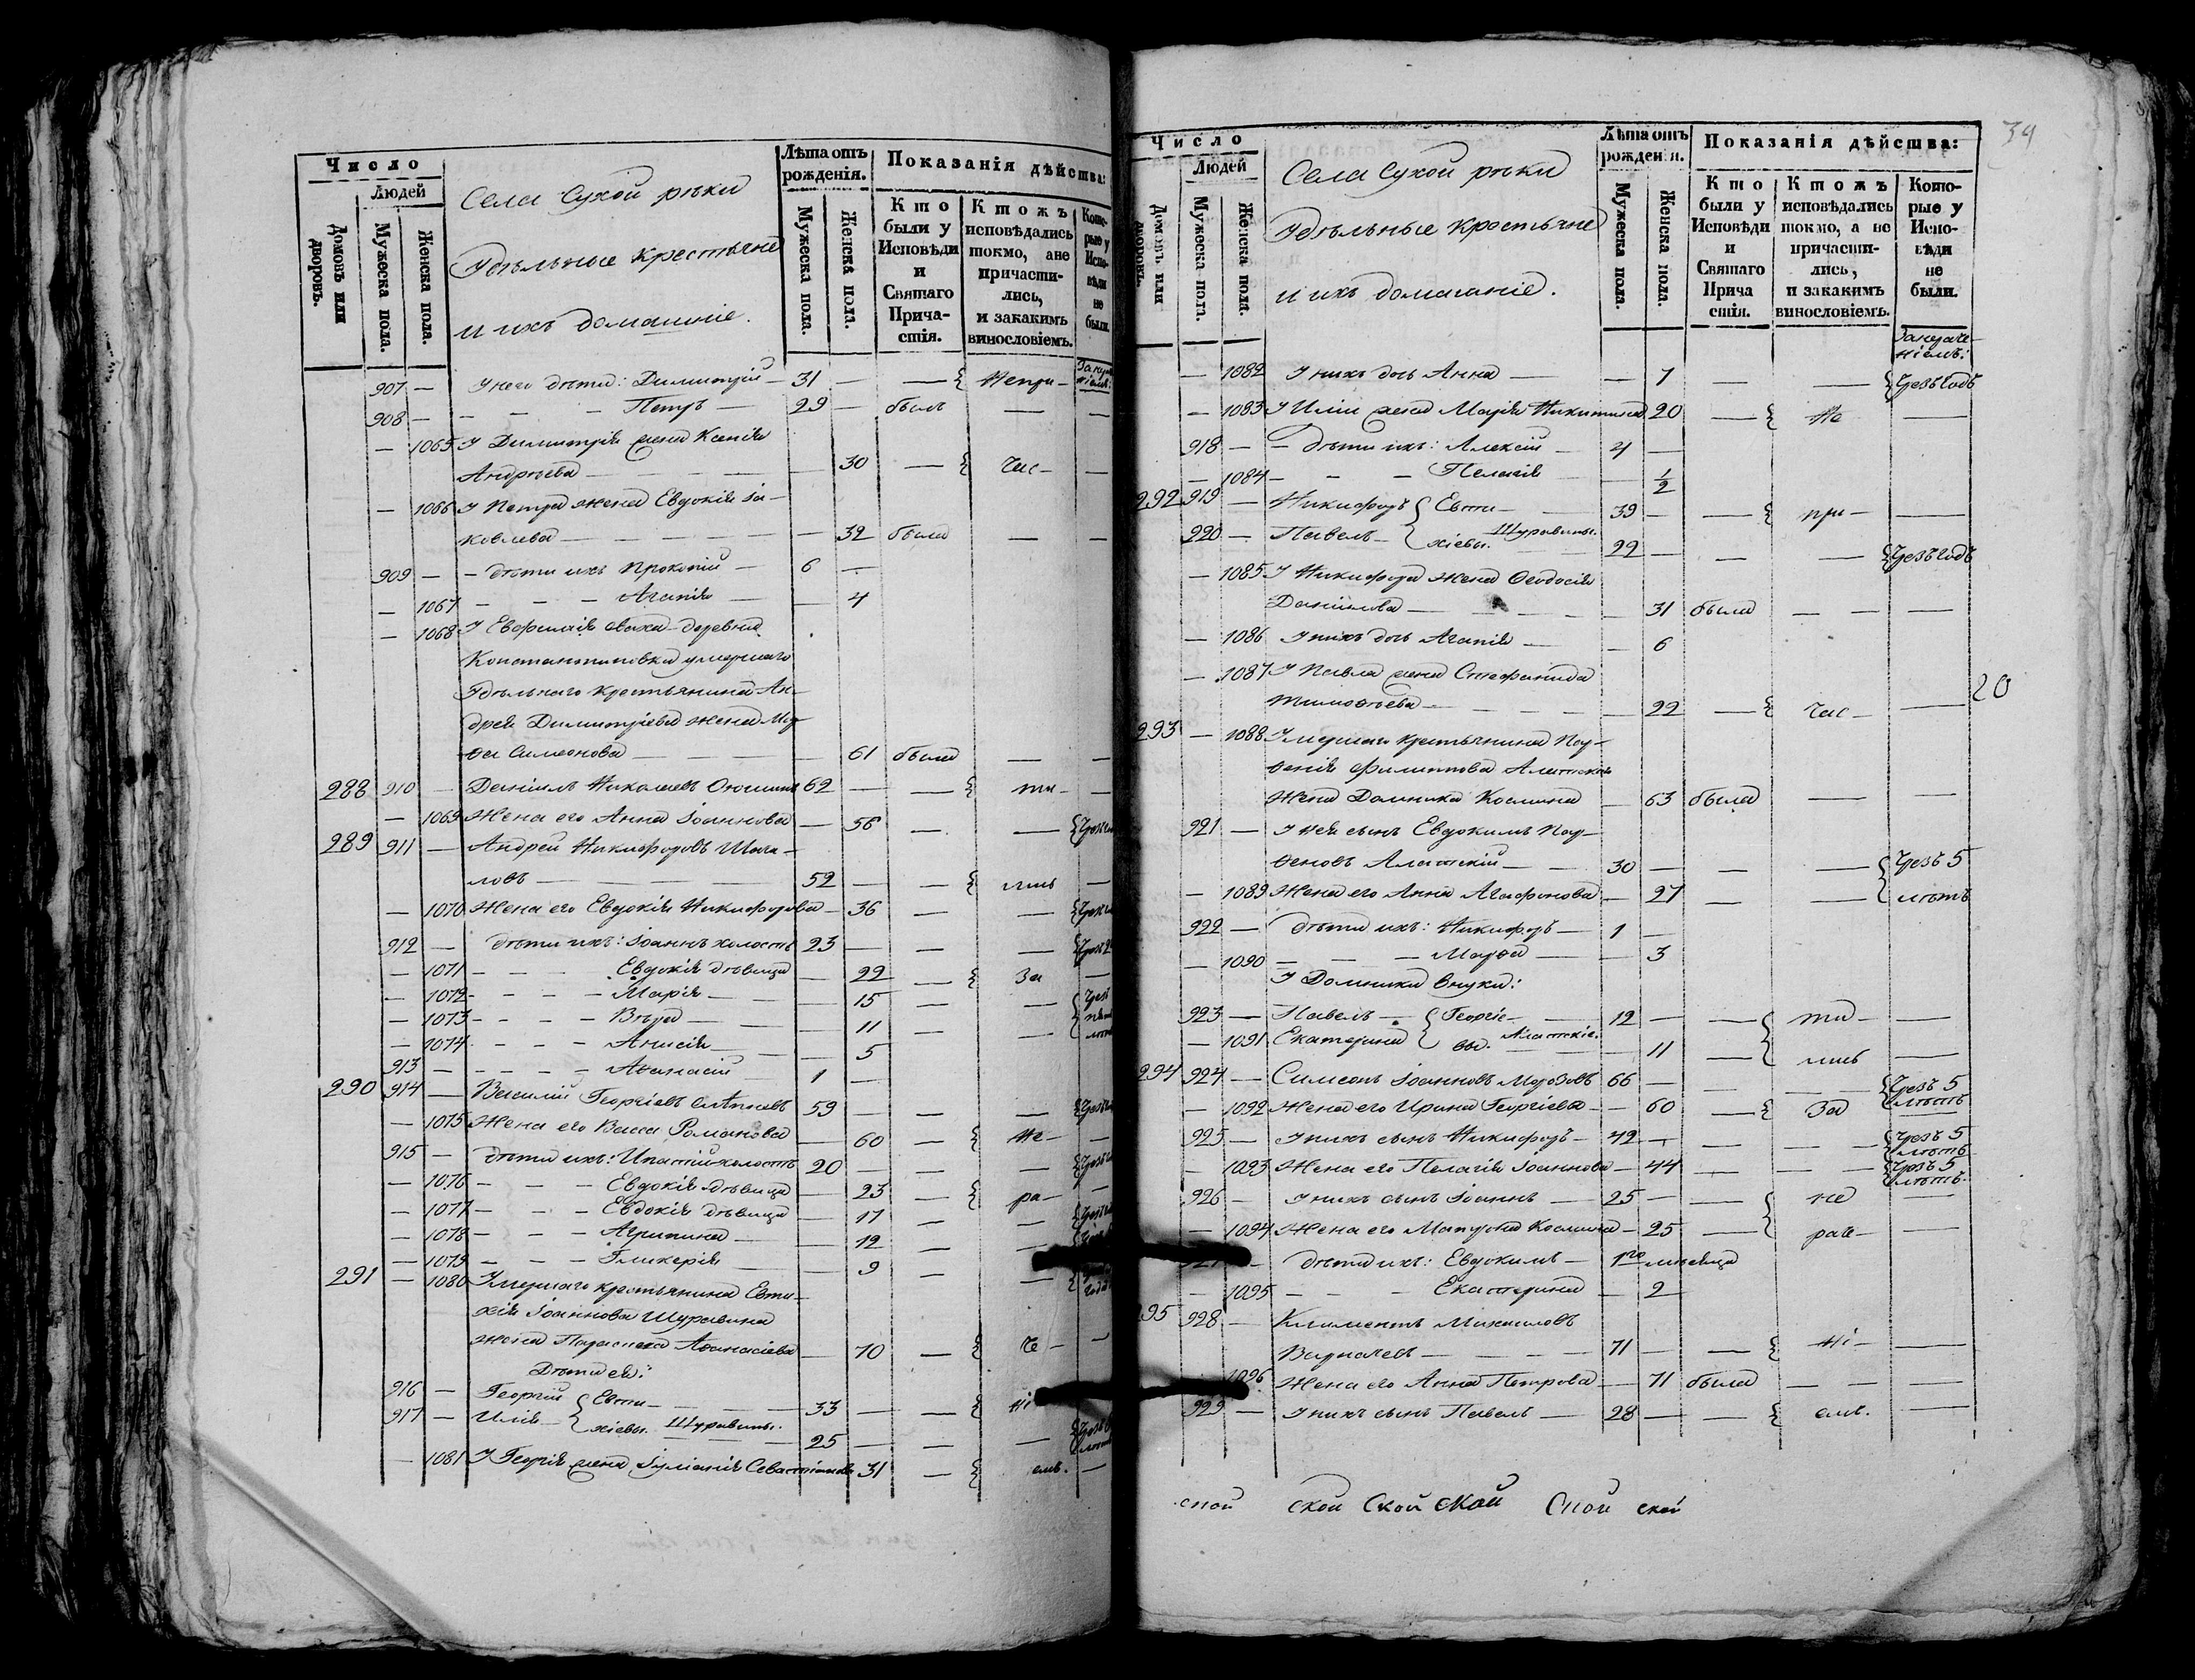 Число
Людей
Домовъ или дворовъ.
Мужеска пола.
Женска пола.
Села Сухой рѣки
Удѣльные крестьяне
и ихъ домашніе.
Лѣта отъ рожденія.
Мужеска пола.
Женска пола.
Показанія дѣйства:
Кто были у Исповѣди и Святаго Прича-стія.
Ктожъ исповѣдались токмо, а не причасти-лись, и закакимъ винословіемъ.
Кото-рые у Испо-вѣди не были.
907 — У него дѣти: Димитрій — 31 — — { Непри-
908 — — — — Петръ — 29 — былъ — —
— 1065 У Димитрія жена Ксенія
Андреева — — 30 — { час- —
— 1066 У Петра жена Евдокія Іа-
ковлева — — 32 была — —
909 — — дѣти ихъ Прокопій — 6 —
— 1067 — — — Агапія — — 4
— 1068 У Евфимія сваха деревни
Константиновки умершаго
Удѣльнаго крестьянина Ан-
дрея Димитріева жена Мар-
ѳа Симеонова — — 61 была — —
288 910 — Даніилъ Николаевъ 62 — — { ти- —
— 1069 Жена его Анна Іоаннова — 56 — — {
289 911 — Андрей Никифоровъ Шига-
ловъ — 52 — — { лись —
— 1070 Жена его Евдокія Никифорова — 36 — — {
912 — дѣти ихъ: Іоаннъ холостъ 23 — — — {
— 1071 — — — Евдокія дѣвица — 22 — { За —
— 1072 — — — Марія — — 15 — — {
— 1073 — — — Вѣра — — 11 — —
— 1074 — — — Анисія — — 5
913 — — — — Аѳанасій — 1 —
290 914 — Василій Георгіевъ 59 — — — {
— 1075 Жена его Васса Романова — 60 — { не- —
915 — дѣти ихъ: Ипатій холостъ 20 — — — {
— 1076 — — — Евдокія дѣвица — 23 — { ра- —
— 1077 — — — Евдокія дѣвица — 17 — — {
— 1078 — — — Агрипина — — 12 — —
— 1079 — — — Гликерія — — 9 — — {
291 — 1080 Умершаго крестьянина Евти-
хія Іоаннова Шуравина
жена Параскева Аѳанасіева — 70 — { че- —
Дѣти ея:
916 — Георгій { Евти- — 33 — — { ні-
917 — Илія — { хіевы. Шуравины. 25 — — — {
— 1081 У Георгія жена Іуліанія Севастіанова 31 — { емъ. —
34
Число
Людей
Домовъ или дворовъ.
Мужеска пола.
Женска пола.
Села Сухой рѣки
Удѣльные крестьяне
и ихъ домашніе.
Лѣта отъ рожденія.
Мужеска пола.
Женска пола.
Показанія дѣйства:
Кто были у Исповѣди и Святаго Прича стія.
Ктожъ исповѣдались токмо, а не причасти-лись, и закакимъ винословіемъ.
Кото-рые у Испо-вѣди не были.
Занераче-
ніемъ:
— 1082 У нихъ дочь Анна — — 7 — — { Чрезъ годъ
— 1083 У Иліи жена Марія Никитина 20 — { Не —
918 — — дѣти ихъ: Алексій — 4 —
— 1084 — — — Пелагія — ½
292 919 — Никифоръ { Евти- — 39 — — { при- —
920 — Павелъ — { хіевы. Шуравины. 29 — — — { Чрезъ годъ
— 1085 У Никифора жена Ѳеодосія
Даніилова — — 31 была — — —
— 1086 У нихъ дочь Агапія — — 6
— 1087 У Павла жена Стефанида
Тимоѳеева — — 22 — { час- —
20
293 — 1088 Умершаго крестьянина Пар-
ѳенія Филиппова Алатскаго
жена Домника Космина — 63 была — —
921 — У нея сынъ Евдокимъ Пар-
ѳеновъ Алатскій — 30 — — — { Чрезъ 5
— 1089 Жена его Анна Агафонова — 27 — — { лѣтъ
922 — дѣти ихъ: Никифоръ — 1 —
— 1090 — — — Марѳа — — 3
У Домники внуки:
923 — Павелъ — { Георгіе- — 12 — — { ти- —
— 1091 Екатерина { вы. Алатскіе. — 11 — { лись —
294 924 — Симеонъ Іоанновъ Морозовъ 66 — — — { Чрезъ 5 лѣтъ
— 1092 Жена его Ирина Георгіева — 60 — { За —
925 — У нихъ сынъ Никифоръ — 42 — — — { Чрезъ 5 лѣтъ
— 1093 Жена его Пелагія Іоаннова — 44 — — { Чрезъ 5 лѣтъ.
926 — У нихъ сынъ Іоаннъ — 25 — — { не —
— 1094 Жена его Матрона Космина — 25 — { раче- —
927 — дѣти ихъ: Евдокимъ — 1го мѣсяца
— 1095 — — — Екатерина — 2
295 928 — Климентъ Михаиловъ
71 — — { ні- —
1096 Жена его Анна Петрова — 71 была — — —
929 — У нихъ сынъ Павелъ — 28 — — { емъ. —
скои Ской ской